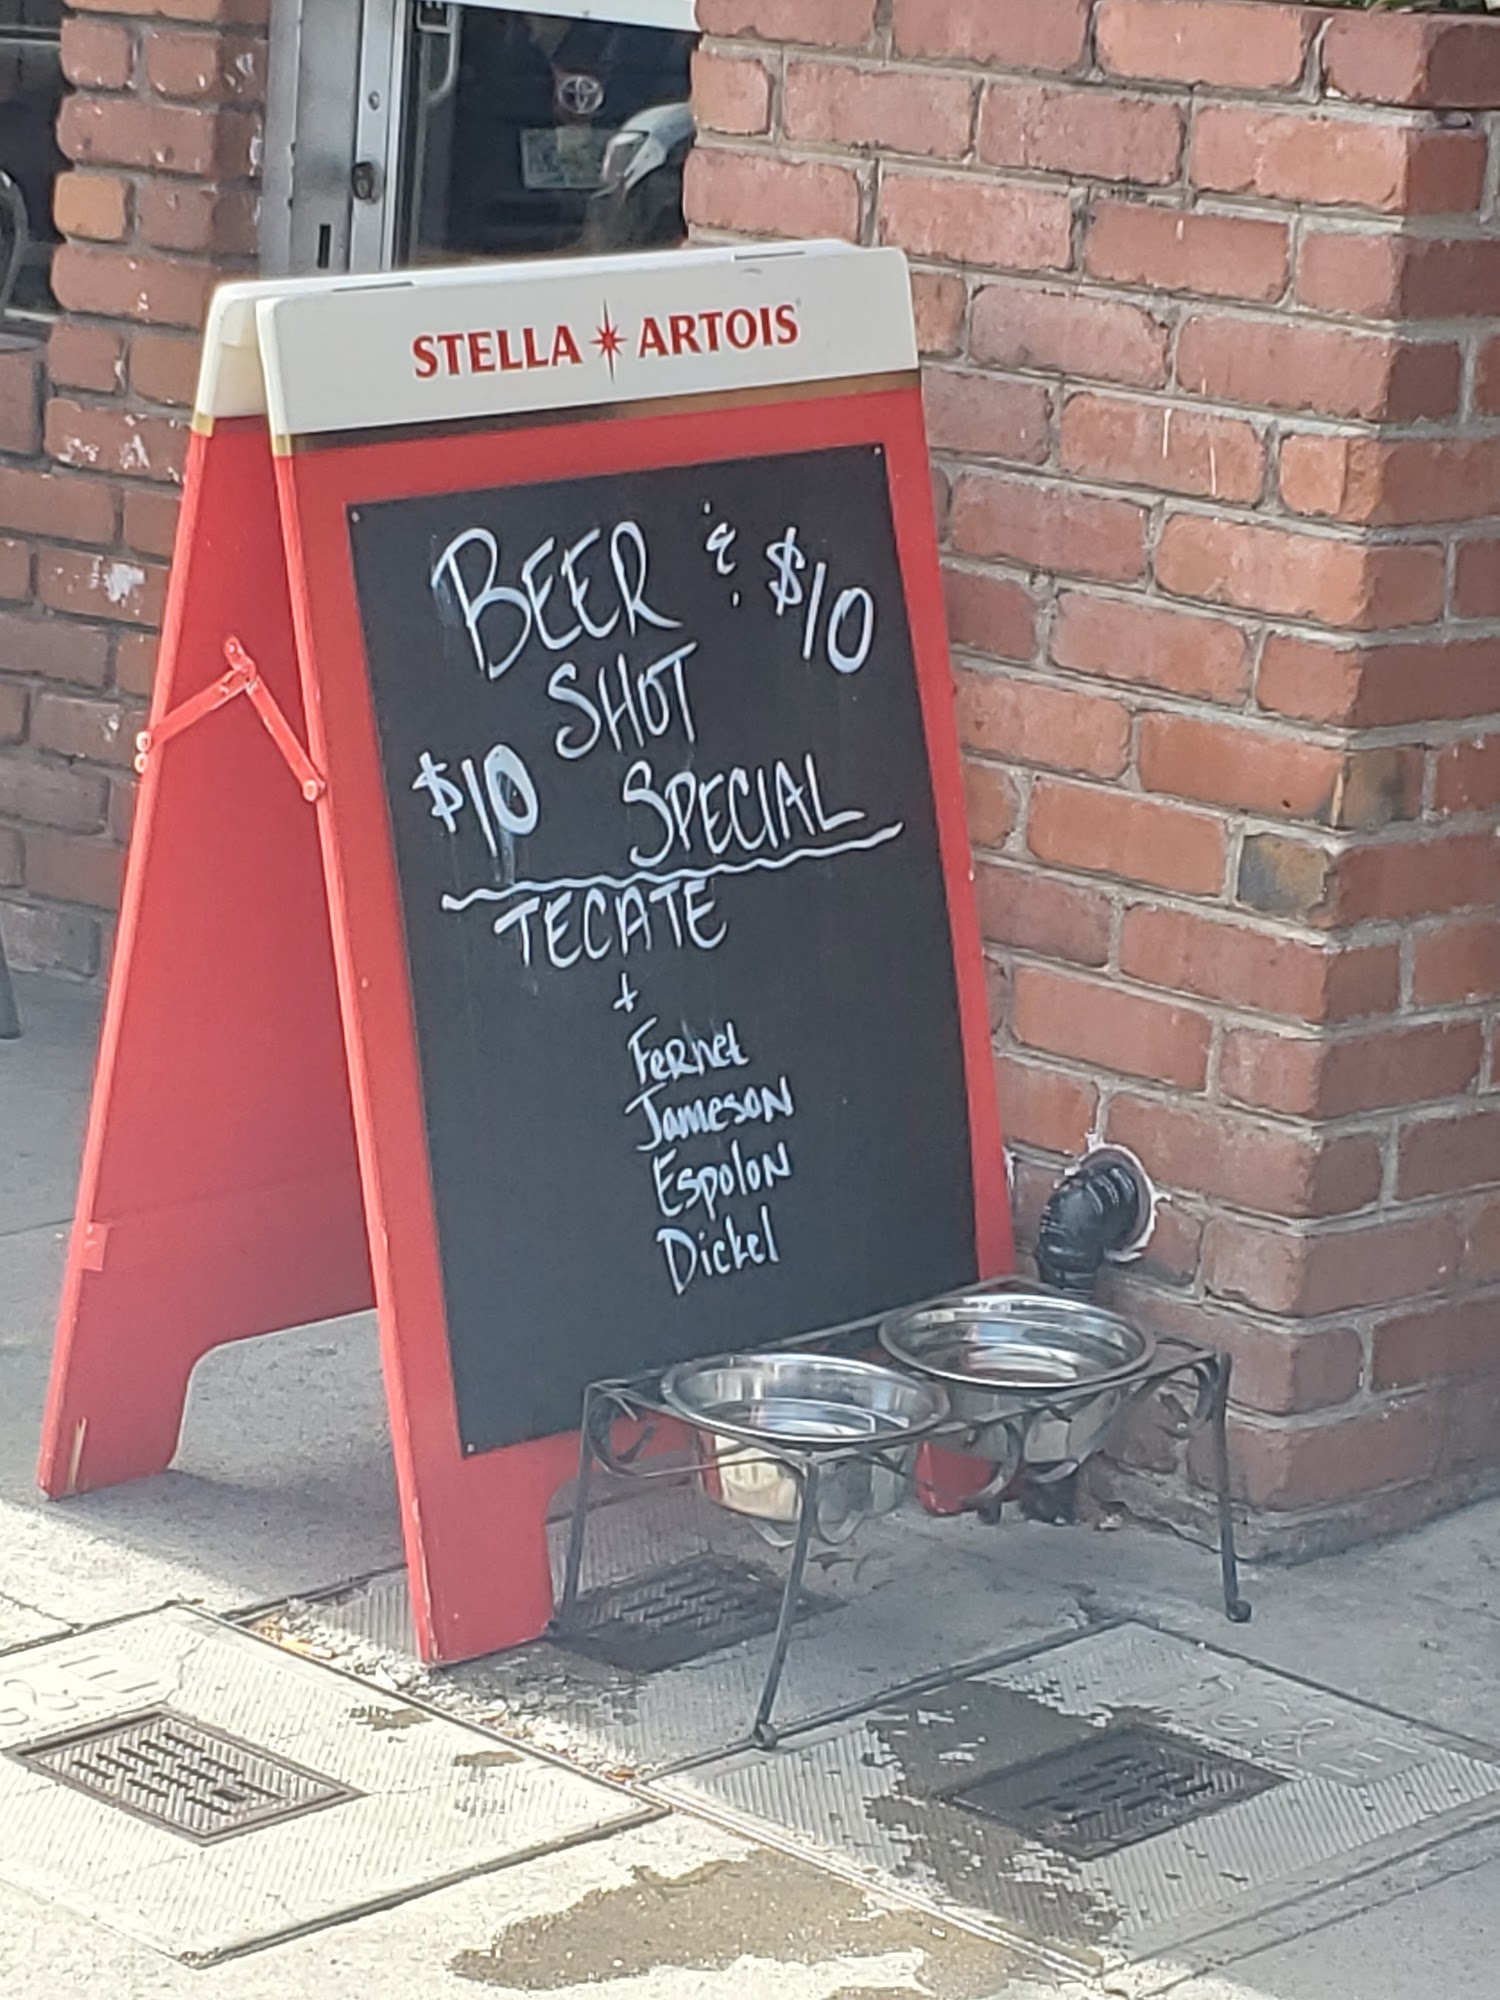 STELLA ARTOIS
BEER & $10
SHOT
$10 SPECIAL
TECATE
+
Fernet
Jameson
Espolon
Dickel